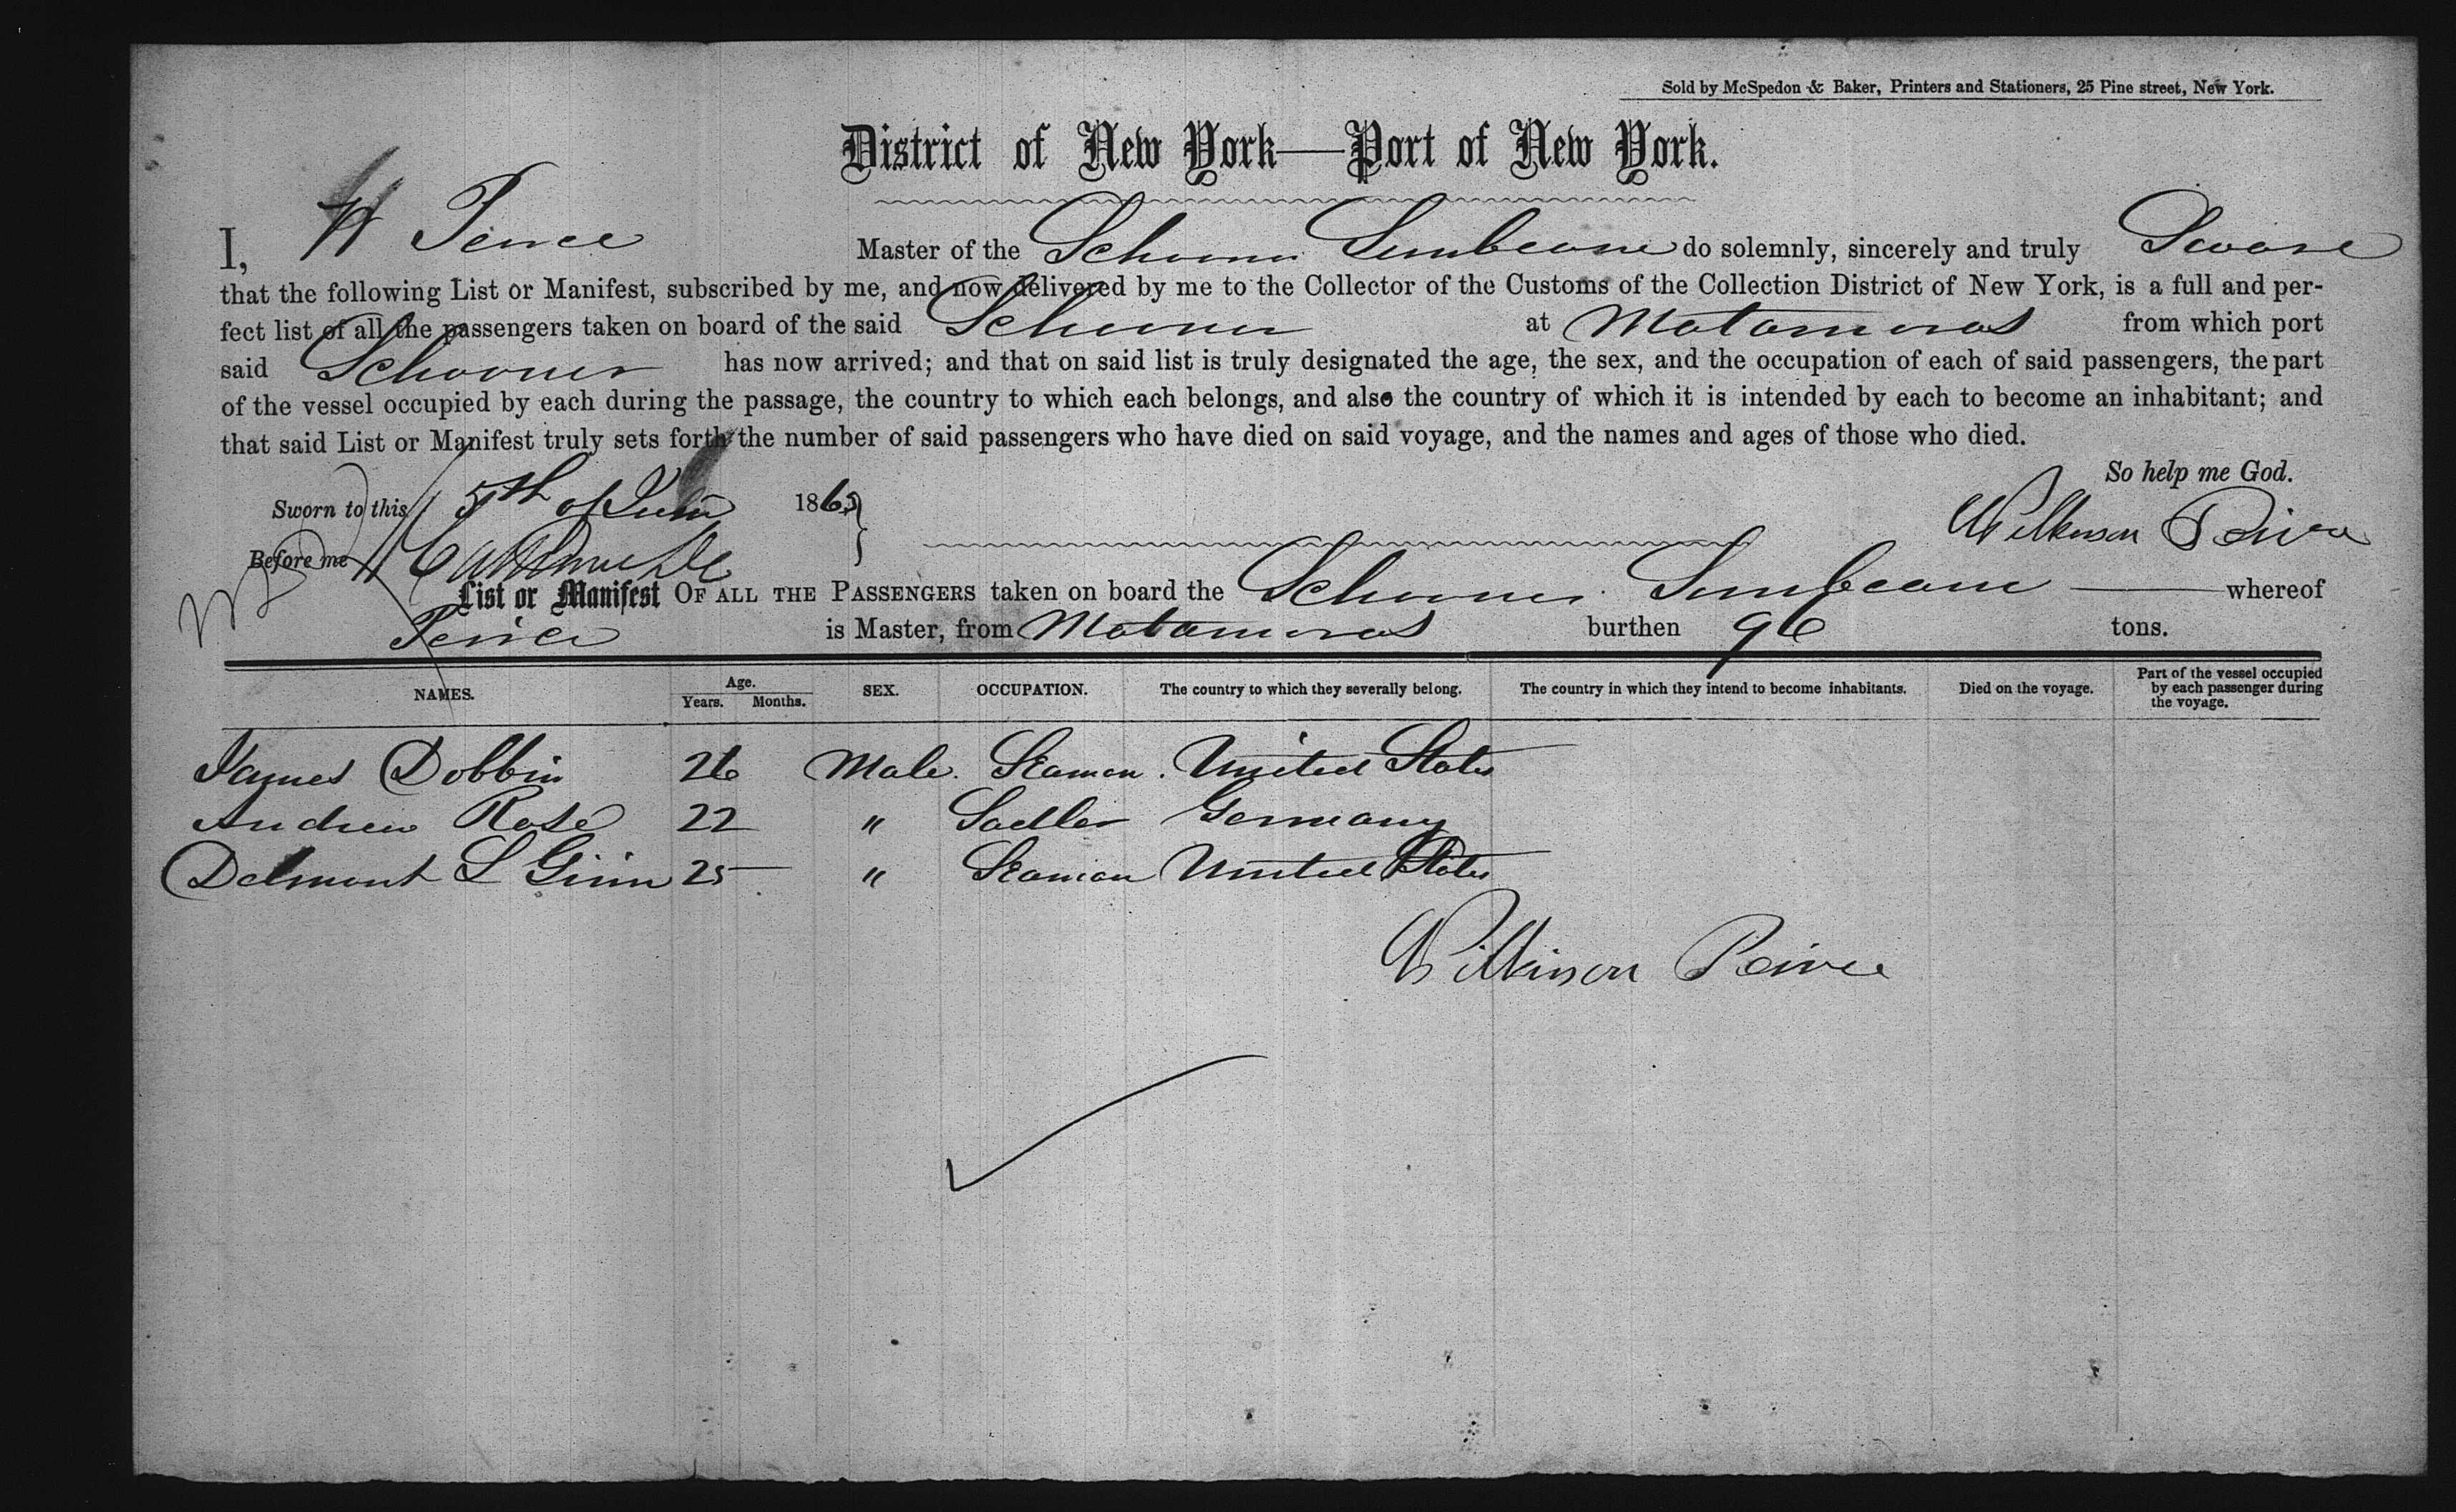 Sold by McSpedon & Baker, Printers and Stationers, 25 Pine street, New York.
District of New York—Port of New York.
I, W Peirce Master of the Schooner Sunbeam do solemnly, sincerely and truly Swear
that the following List or Manifest, subscribed by me, and now delivered by me to the Collector of the Customs of the Collection District of New York, is a full and per-
fect list of all the passengers taken on board of the said Schooner at Matamoras from which port
said Schooner has now arrived; and that on said list is truly designated the age, the sex, and the occupation of each of said passengers, the part
of the vessel occupied by each during the passage, the country to which each belongs, and also the country of which it is intended by each to become an inhabitant; and
that said List or Manifest truly sets forth the number of said passengers who have died on said voyage, and the names and ages of those who died.
So help me God.
Sworn to this 5th of 1865
Wilkinson Peirce
Before me
List or Manifest OF ALL THE PASSENGERS taken on board the Schooner Sunbeam whereof
W Peirce is Master, from Matamoras burthen 96 tons.
NAMES. Age. Years. Months. SEX. OCCUPATION. The country to which they severally belong. The country in which they intend to become inhabitants. Died on the voyage. Part of the vessel occupied by each passenger during the voyage.
James Dobbin 26 Male. Seaman. United States
Andrew Rose 22 " Sadler Germany
Delmont L Ginn 25 " Seaman United States
Wilkinson Peirce